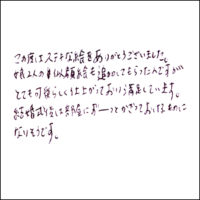 この度はステキな絵をありがとうございました。
娘2人の似顔絵を追加してもらったんですが
とても可愛らしく仕上がっており満足しています。
結婚式後は部屋にずーっとかざっておくものに
なりそうです。